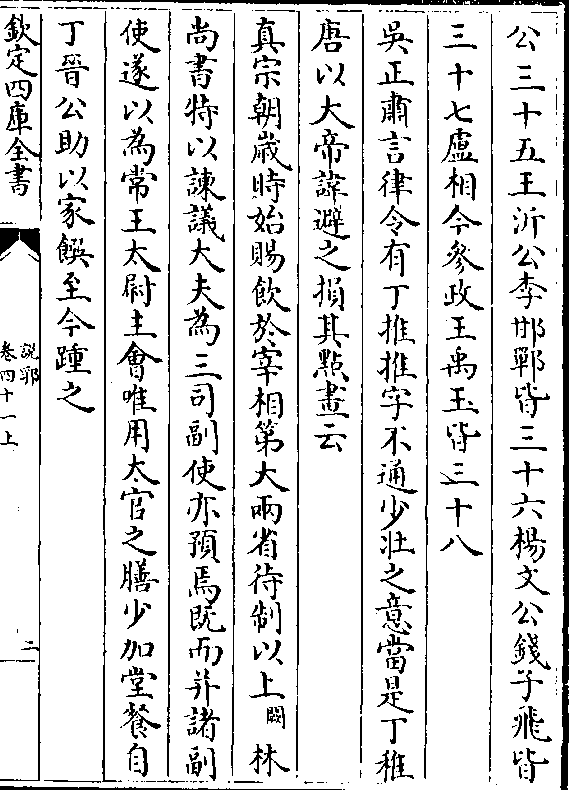 公三十五王沂公李邯鄲皆三十六楊文公錢子飛皆
三十七盧相今參政王禹玉皆三十八
吳正肅言律令有丁推推字不通少壯之意當是丁稚
唐以大帝諱避之損其點畫云
真宗朝歲時始賜飲於宰相第大兩省待制以上闕林
尚書特以諫議大夫為三司副使亦預焉既而并諸副
使遂以為常王太尉主會唯用太官之膳少加堂餐自
丁晉公助以家饌至今踵之
欽定四庫全書
說郛
卷四十一上
二